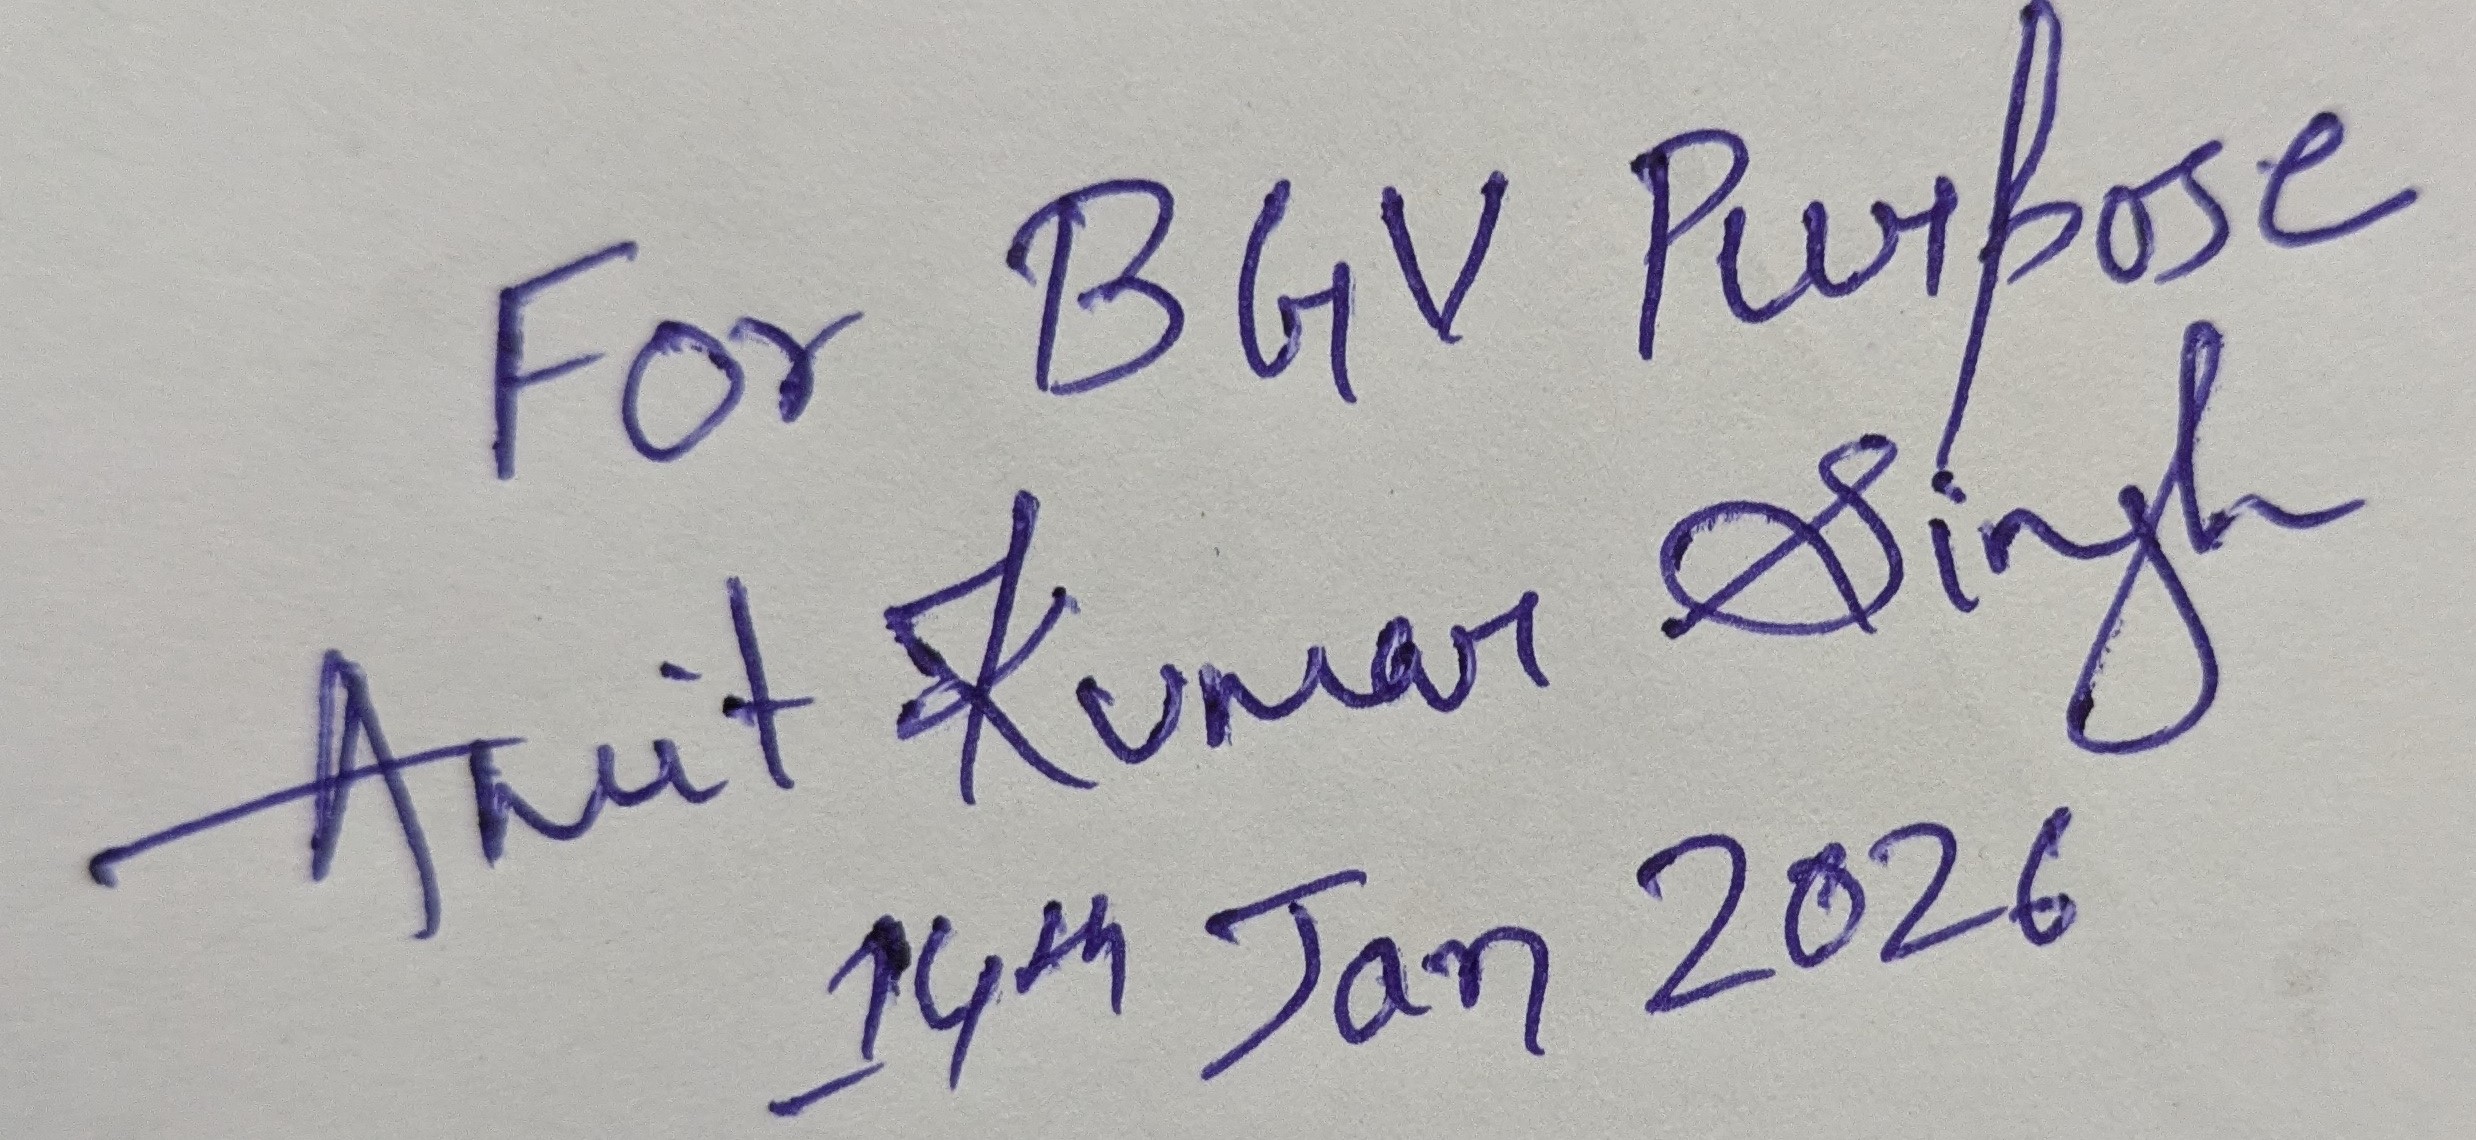 For BGV Purpose
Amit Kumar Singh
14th Jan 2026